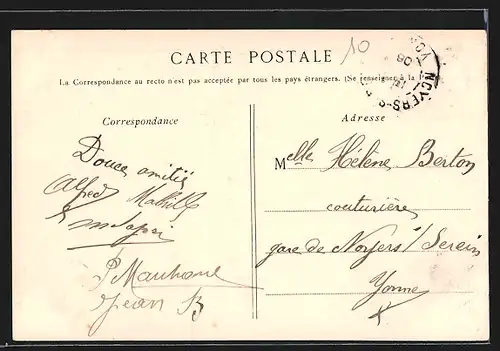 10
CARTE POSTALE
La Correspondance au recto n'est pas acceptée par tous les pays étrangers. (Se renseigner à la
NOYERS-S-S
08
Correspondance
Adresse
Douce amitié
Alfred Mathilde
Melle Hélène Berton
couturière
gare de Noyers s/ Serein
Yonne
P Marchand
Jean B